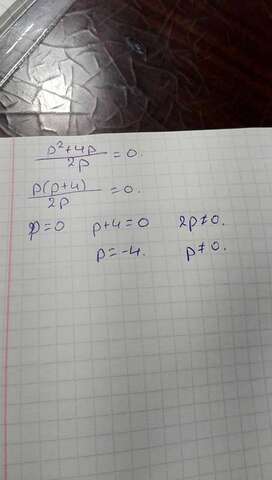 p²+4p/2p = 0.
p(p+4)/2p = 0.
p=0 p+4=0 2p≠0.
p=-4. p≠0.